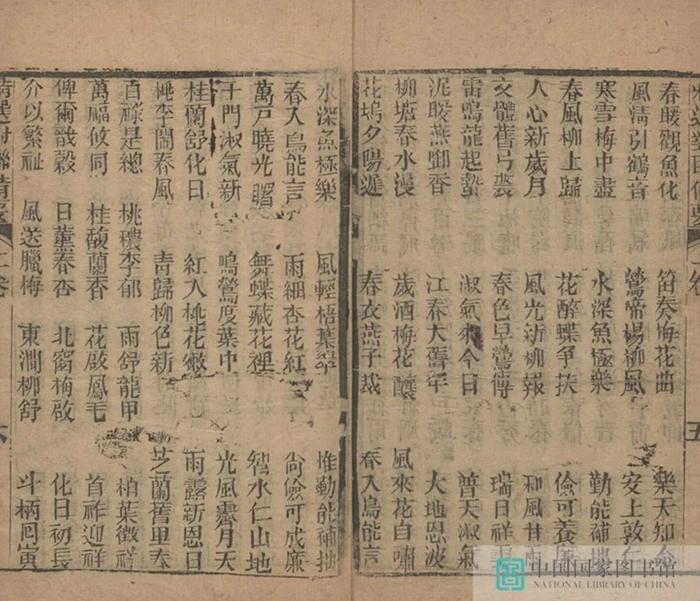 春暖觀魚化 笛奏梅花曲 樂天知命
風清引鶴音 鶯啼楊柳風 安上敦仁
寒雪梅中盡 水深魚極樂 勤能補拙
春風柳上歸 花醉蝶爭扶 儉可養廉
人心新歲月 風光新柳報 和風甘雨
交體舊弓裘 春色早鶯傳 瑞日祥雲
雷鳴龍起蟄 淑氣來今日 普天淑氣
泥暖燕啣香 江春大舊年 大地恩波
柳塘春水漫 歲酒梅花釀 風來花自嘯
花塢夕陽遲 春衣燕子裁 春入鳥能言
五
水深魚極樂 風輕梧葉翠 惟勤能補拙
春入鳥能言 雨細杏花紅 尙儉可成廉
萬戸曉光曙 舞蝶藏花裡 智水仁山地
千門淑氣新 鳴鶯度葉中 光風霽月天
桂蘭舒化日 紅入桃花嫩 雨露新恩日
桃李鬧春風 靑歸柳色新 芝蘭舊里春
百祿是總 桃穠李郁 雨舒龍甲 柏葉徵祥
萬福攸同 桂馥蘭香 花啟鳳毛 首祚迎祥
俾爾戩穀 日薰春杏 北窗梅啟 化日初長
介以繁祉 風送臘梅 東澗柳舒 斗柄囘寅
精選對聯 二卷 六
中国国家图书馆
NATIONAL LIBRARY OF CHINA